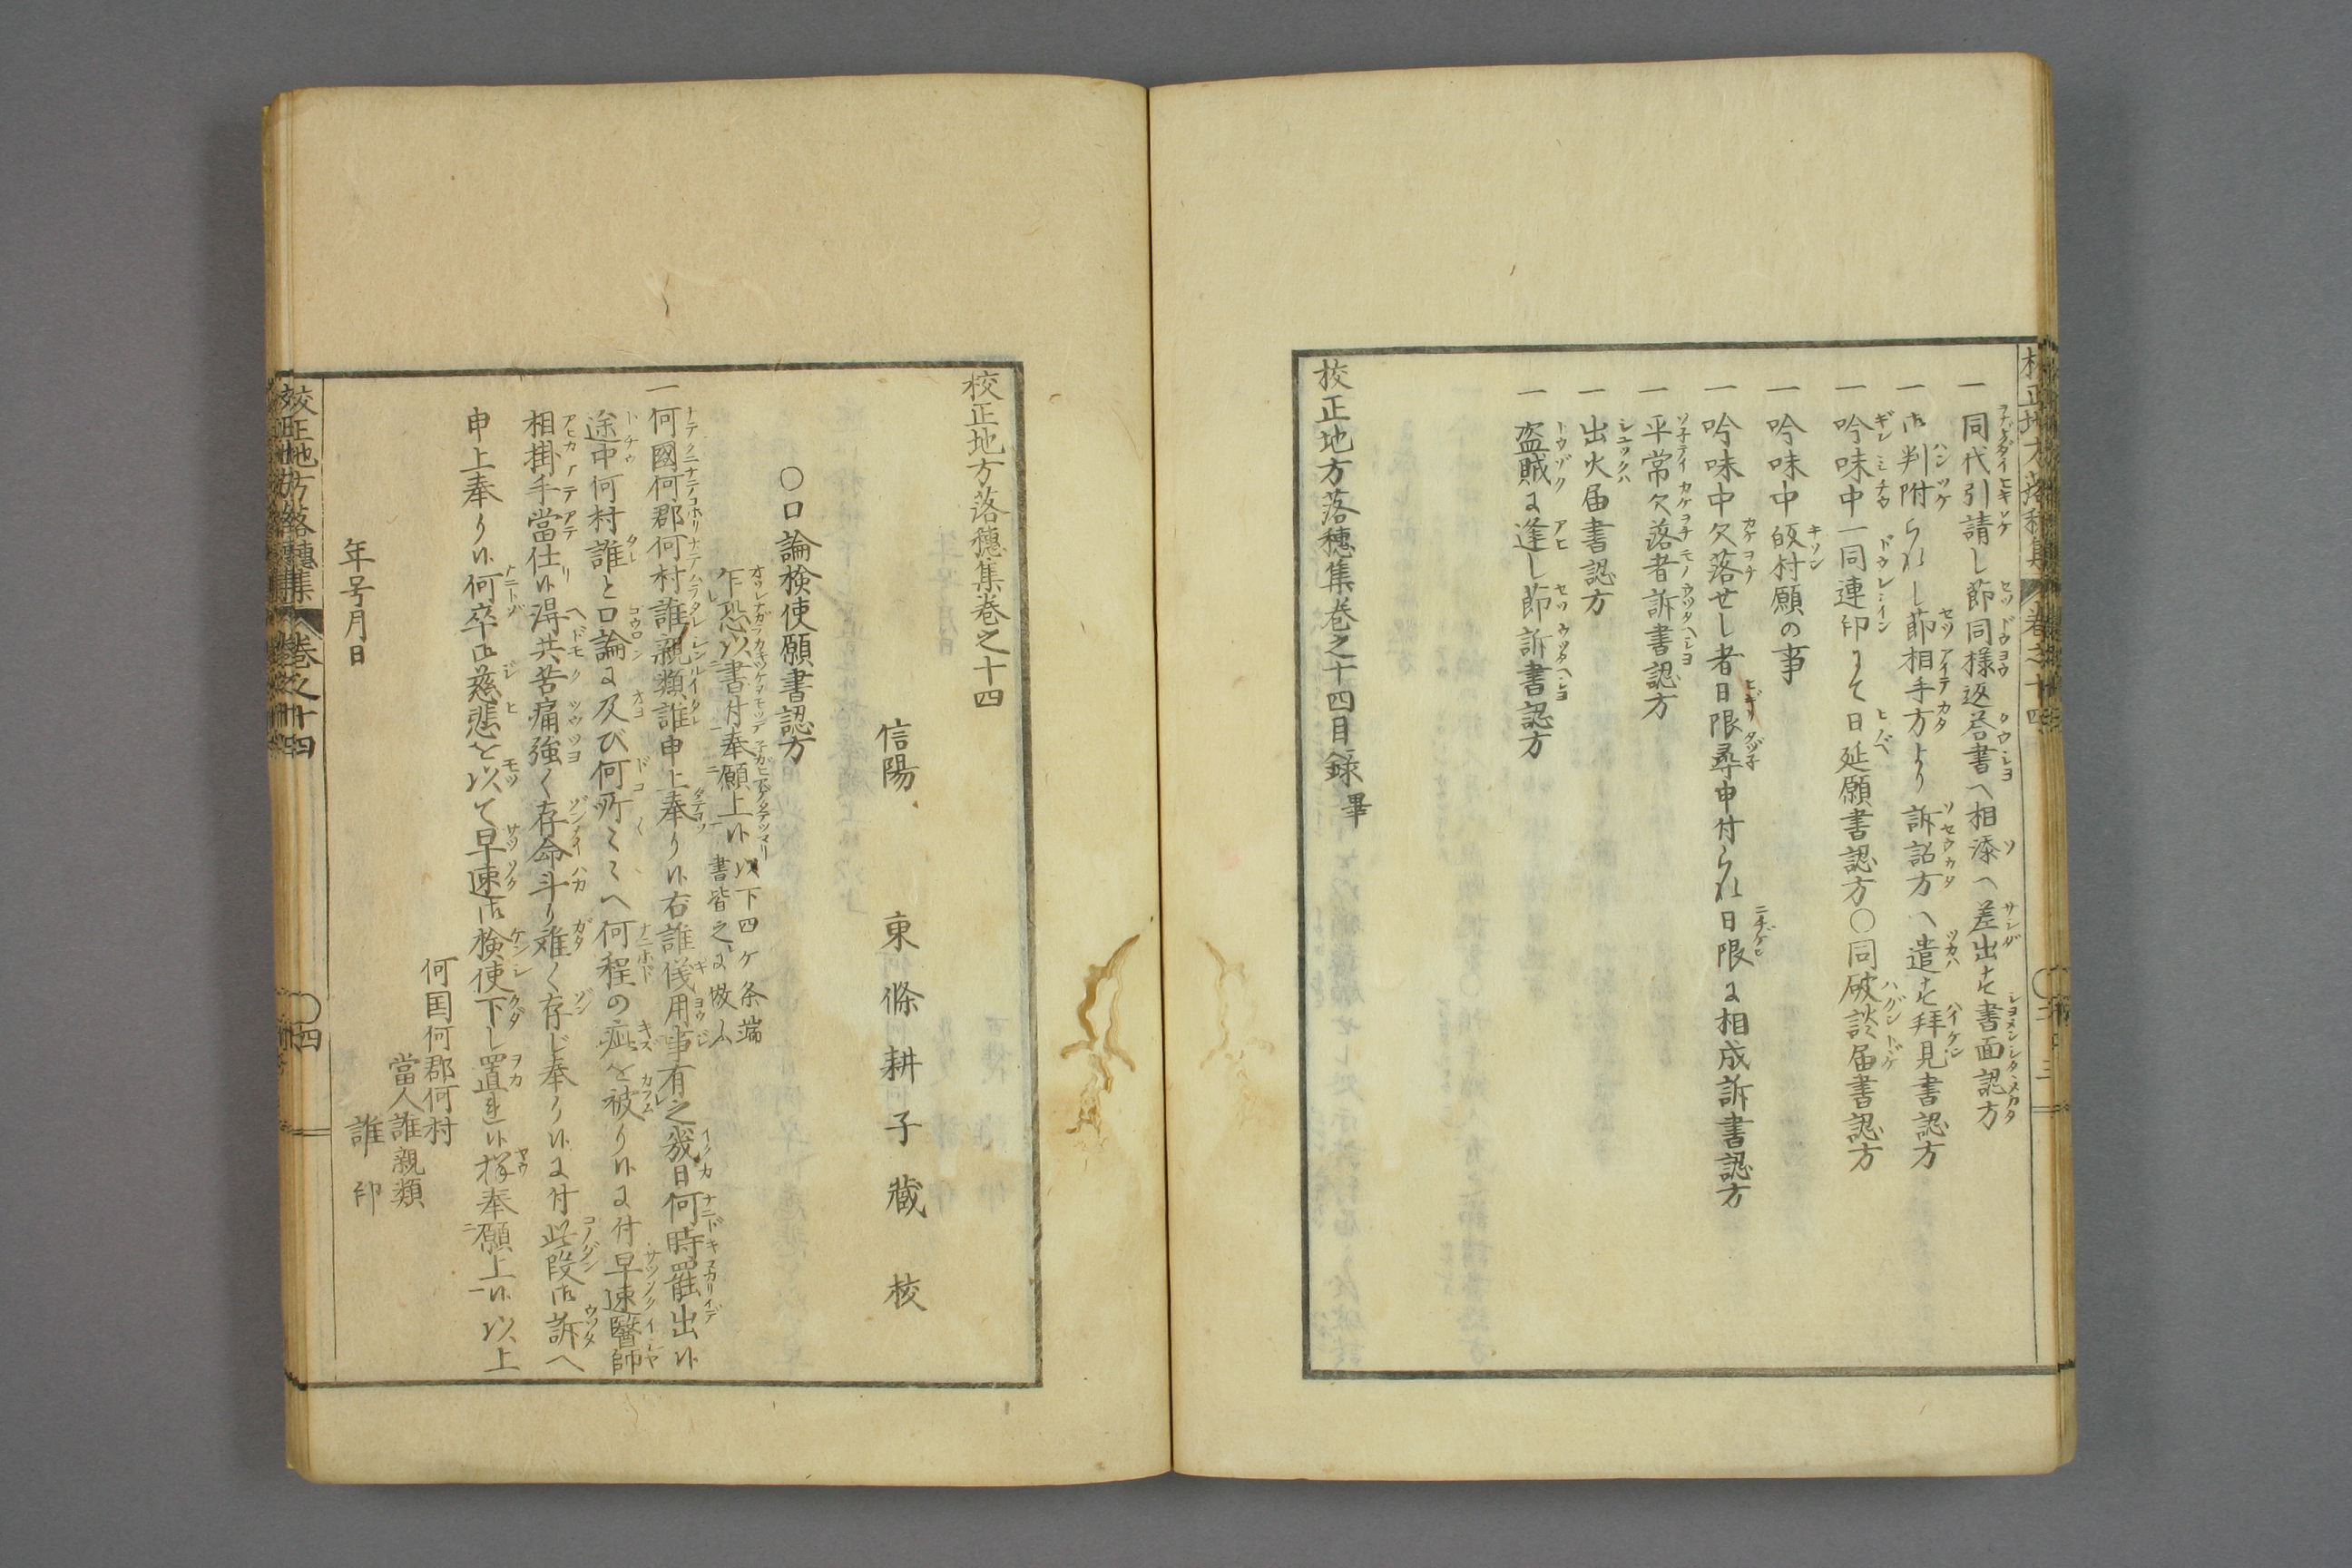 一同代引請し節同様返答書へ相添へ差出す書面認方
一御判附られし節相手方より訴訟方へ遣す拝見書認方
一吟味中一同連印にて日延願書認方〇同破談届書認方
一吟味中皈村願の事
一吟味中欠落せし者日限尋申付られ日限に相成訴書認方
一平常欠落者訴書認方
一出火届書認方
一盗賊に逢し節訴書認方
校正地方落穂集巻之十四目録畢
校正地方落穂集巻之十四
信陽 東條耕子蔵校
〇口論検使願書認方
乍恐以書付奉願上候 以下四ケ条端書皆之に倣ふ
一何國何郡何村誰親類誰申上奉り候右誰儀用事有之幾日何時罷出候
途中何村誰と口論に及び何所〻〻へ何程の疵を被り候に付早速醫師
相掛手當仕候得共苦痛強く存命斗り難く存じ奉り候に付此段御訴へ
申上奉り候何卒御慈悲を以て早速御検使下し置れ候様奉願上候以上
何国何郡何村
當人誰親類
年号月日 誰印
校正地方落穂集 巻之十四 〇四